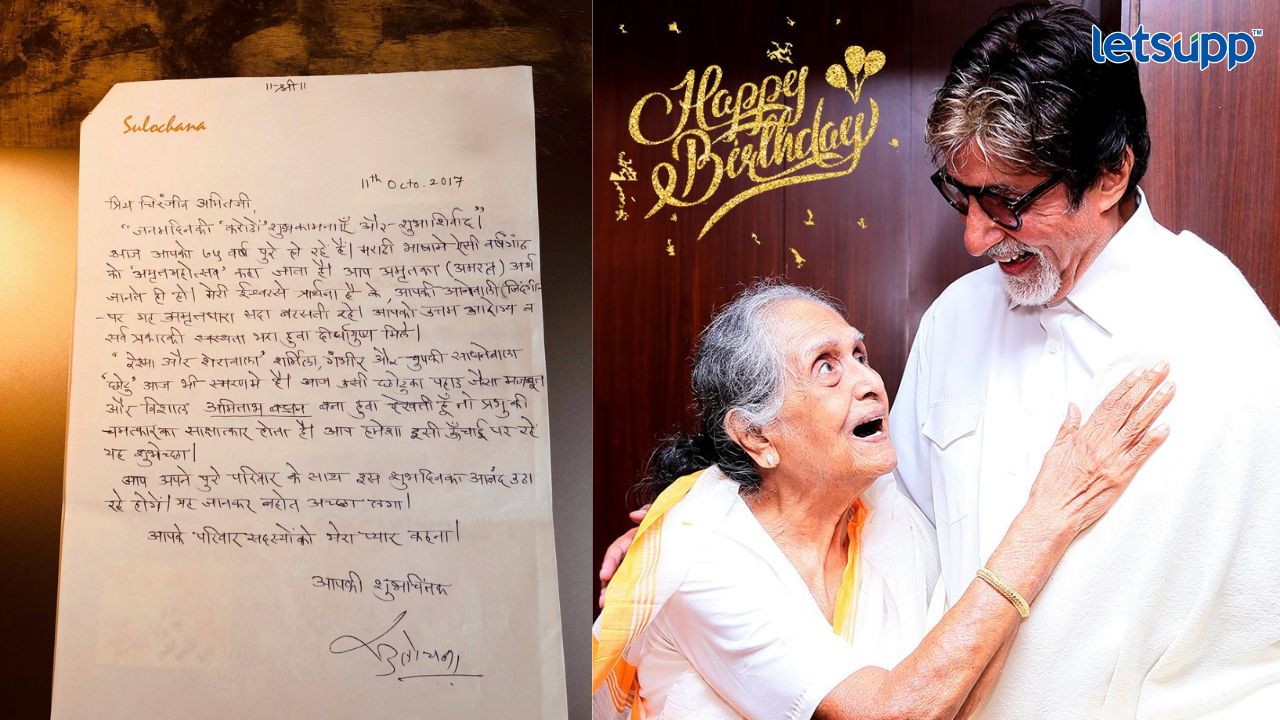 ॥श्री॥
Sulochana
11th Octo. 2017
प्रिय चिरंजीव अमितजी,
"जनमदिनकी 'करोडों' शुभकामनाएँ और-शुभाशिर्वाद।"
आज आपको ७५ वर्ष पुरे हो रहे है। मराठी भाषामे ऐसी वर्षगाँठ
को 'अमृतमहोत्सव' कहा जाता है। आप अमृतका (अमरत्व) अर्थ
जानते ही हो। मेरी ईश्वरसे प्रार्थना है के, आपकी आनेवाली जिंदगी-
-पर यह अमृतधारा सदा बरसती रहे। आपको उत्तम आरोग्य व
सर्व प्रकारकी स्वस्थता भरा हुवा दीर्घायुष्य मिले।
"रेश्मा और शेरावाला' शर्मिला, गंभीर और-चुपकी साधनेवाला
'छोटु' आज भी स्मरणमे है। आज उसी छोटुका पहाड जैसा मजबूत
और विशाल अमिताभ बच्चन बना हुवा देखती हूँ तो प्रभु की
चमत्कारका साक्षात्कार होता है। आप हमेशा इसी ऊँचाई पर रहे
यह शुभेच्छा।
आप अपने पुरे परिवार के साथ इस शुभदिनका आनंद उठा
रहे होगें। यह जानकर बहोत अच्छा लगा।
आपके परिवार सदस्योंको मेरा प्यार कहना।
आपकी शुभचिंतक
सुलोचना
Happy
Birthday
letsupp™